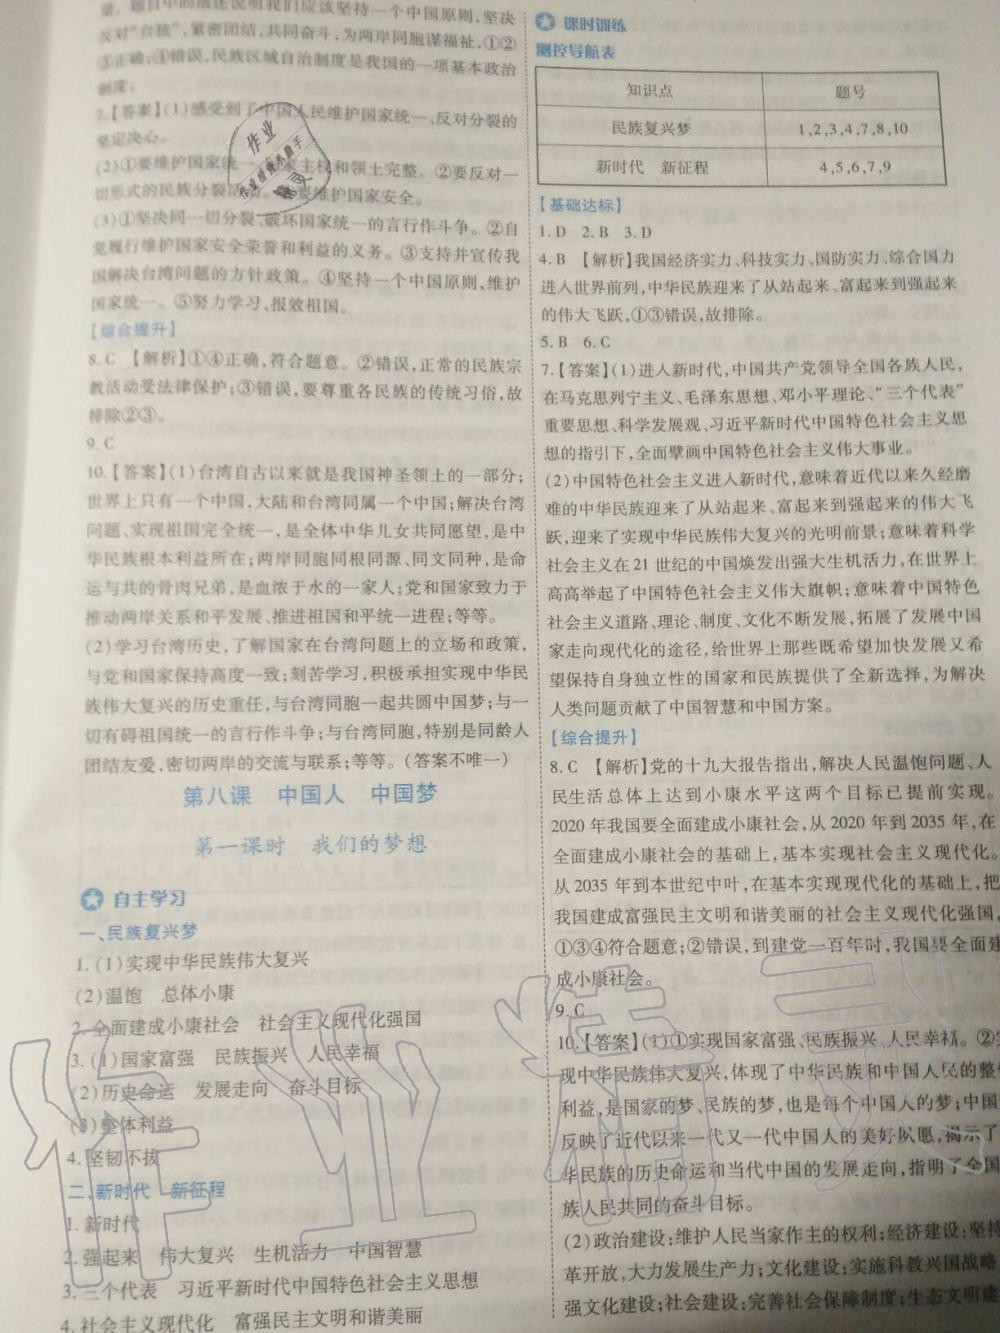 望。题目中的描述说明我们应该坚持一个中国原则,坚决
反对“台独”,紧密团结,共同奋斗,为两岸同胞谋福祉,①②
③正确;④错误,民族区域自治制度是我国的一项基本政治
制度。
7.【答案】(1)感受到了中国人民维护国家统一、反对分裂的
坚定决心。
(2)①要维护国家统一、主权和领土完整。②要反对一
切形式的民族分裂活动。要维护国家安全。
(3)①坚决同一切分裂、破坏国家统一的言行作斗争。②自
觉履行维护国家安全荣誉和利益的义务。③支持并宣传我
国解决台湾问题的方针政策。④坚持一个中国原则,维护
国家统一。⑤努力学习,报效祖国。
【综合提升】
8. C 【解析】①④正确,符合题意。②错误,正常的民族宗
教活动受法律保护;③错误,要尊重各民族的传统习俗,故
排除②③。
9. C
10.【答案】(1)台湾自古以来就是我国神圣领土的一部分;
世界上只有一个中国,大陆和台湾同属一个中国;解决台湾
问题、实现祖国完全统一,是全体中华儿女共同愿望,是中
华民族根本利益所在;两岸同胞同根同源、同文同种,是命
运与共的骨肉兄弟,是血浓于水的一家人;党和国家致力于
推动两岸关系和平发展、推进祖国和平统一进程;等等。
(2)学习台湾历史,了解国家在台湾问题上的立场和政策,
与党和国家保持高度一致;刻苦学习,积极承担实现中华民
族伟大复兴的历史重任,与台湾同胞一起共圆中国梦;与一
切有碍祖国统一的言行作斗争;与台湾同胞,特别是同龄人
团结友爱,密切两岸的交流与联系;等等。(答案不唯一)
第八课 中国人 中国梦
第一课时 我们的梦想
自主学习
一、民族复兴梦
1. (1)实现中华民族伟大复兴
(2)温饱 总体小康
2. 全面建成小康社会 社会主义现代化强国
3. (1)国家富强 民族振兴 人民幸福
(2)历史命运 发展走向 奋斗目标
(3)整体利益
4. 坚韧不拔
二、新时代 新征程
1. 新时代
2. 强起来 伟大复兴 生机活力 中国智慧
3. 三个代表 习近平新时代中国特色社会主义思想
4. 社会主义现代化 富强民主文明和谐美丽
课时训练
测控导航表
知识点 题号
民族复兴梦 1,2,3,4,7,8,10
新时代 新征程 4,5,6,7,9
【基础达标】
1. D 2. B 3. D
4. B 【解析】我国经济实力、科技实力、国防实力、综合国力
进入世界前列,中华民族迎来了从站起来、富起来到强起来
的伟大飞跃,①③错误,故排除。
5. B 6. C
7.【答案】(1)进入新时代,中国共产党领导全国各族人民,
在马克思列宁主义、毛泽东思想、邓小平理论、“三个代表”
重要思想、科学发展观、习近平新时代中国特色社会主义思
想的指引下,全面擘画中国特色社会主义伟大事业。
(2)中国特色社会主义进入新时代,意味着近代以来久经磨
难的中华民族迎来了从站起来、富起来到强起来的伟大飞
跃,迎来了实现中华民族伟大复兴的光明前景;意味着科学
社会主义在 21 世纪的中国焕发出强大生机活力,在世界上
高高举起了中国特色社会主义伟大旗帜;意味着中国特色
社会主义道路、理论、制度、文化不断发展,拓展了发展中国
家走向现代化的途径,给世界上那些既希望加快发展又希
望保持自身独立性的国家和民族提供了全新选择,为解决
人类问题贡献了中国智慧和中国方案。
【综合提升】
8. C 【解析】党的十九大报告指出,解决人民温饱问题、人
民生活总体上达到小康水平这两个目标已提前实现。
2020 年我国要全面建成小康社会,从 2020 年到 2035 年,在
全面建成小康社会的基础上,基本实现社会主义现代化。
从 2035 年到本世纪中叶,在基本实现现代化的基础上,把
我国建成富强民主文明和谐美丽的社会主义现代化强国,
①③④符合题意;②错误,到建党一百年时,我国要全面建
成小康社会。
9. C
10.【答案】(1)①实现国家富强、民族振兴、人民幸福。②实
现中华民族伟大复兴,体现了中华民族和中国人民的整体
利益,是国家的梦、民族的梦,也是每个中国人的梦;中国
反映了近代以来一代又一代中国人的美好夙愿,揭示了
华民族的历史命运和当代中国的发展走向,指明了全国
族人民共同的奋斗目标。
(2)政治建设:维护人民当家作主的权利;经济建设:坚持
革开放,大力发展生产力;文化建设:实施科教兴国战略
强文化建设;社会建设:完善社会保障制度;生态文明建
作业
作业检查小助手
精灵
作业精灵